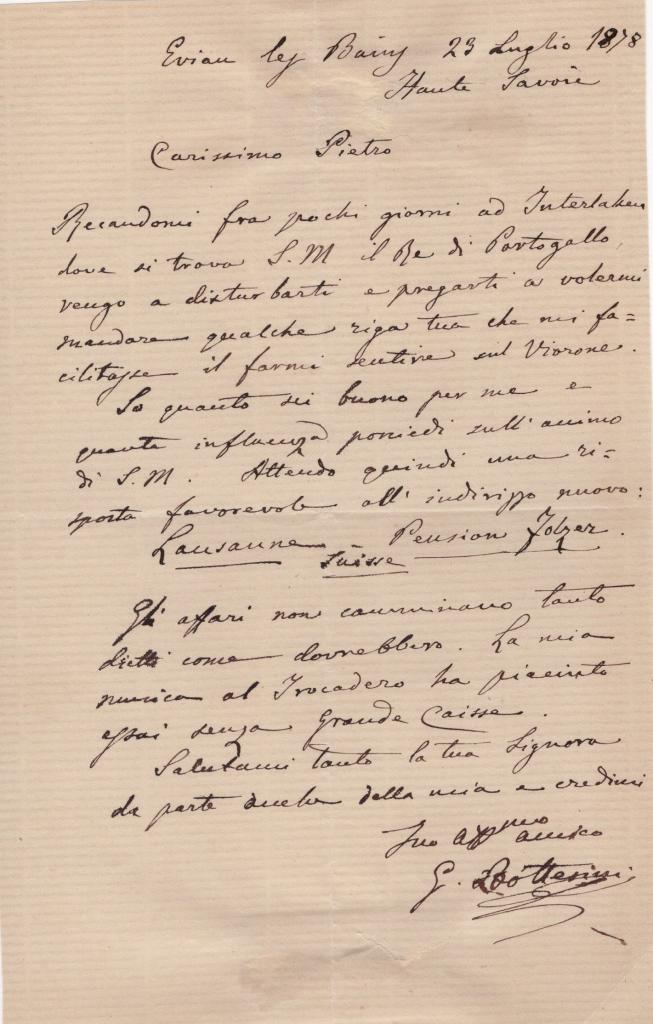 Evian les Bains 23 Luglio 1878
Haute Savoie
Carissimo Pietro
Recandomi fra pochi giorni ad Interlaken
dove si trova S. M il Re di Portogallo,
vengo a disturbarti e pregarti a volermi
mandare qualche riga tua che mi fa=
cilitasse il farmi sentire sul Violone.
So quanto sei buono per me e
quanta influenza possiedi sull' animo
di S. M. Attendo quindi una ri=
sposta favorevole all' indirizzo nuovo:
Lausanne - Pension
Suisse
Gli affari non camminano tanto
diritti come dovrebbero. La mia
musica al Trocadero ha piaciuto
assai senza Grande Caisse.
Salutami tanto la tua Signora
da parte anche della mia e credimi
Tuo affmo amico
G. Bottesini